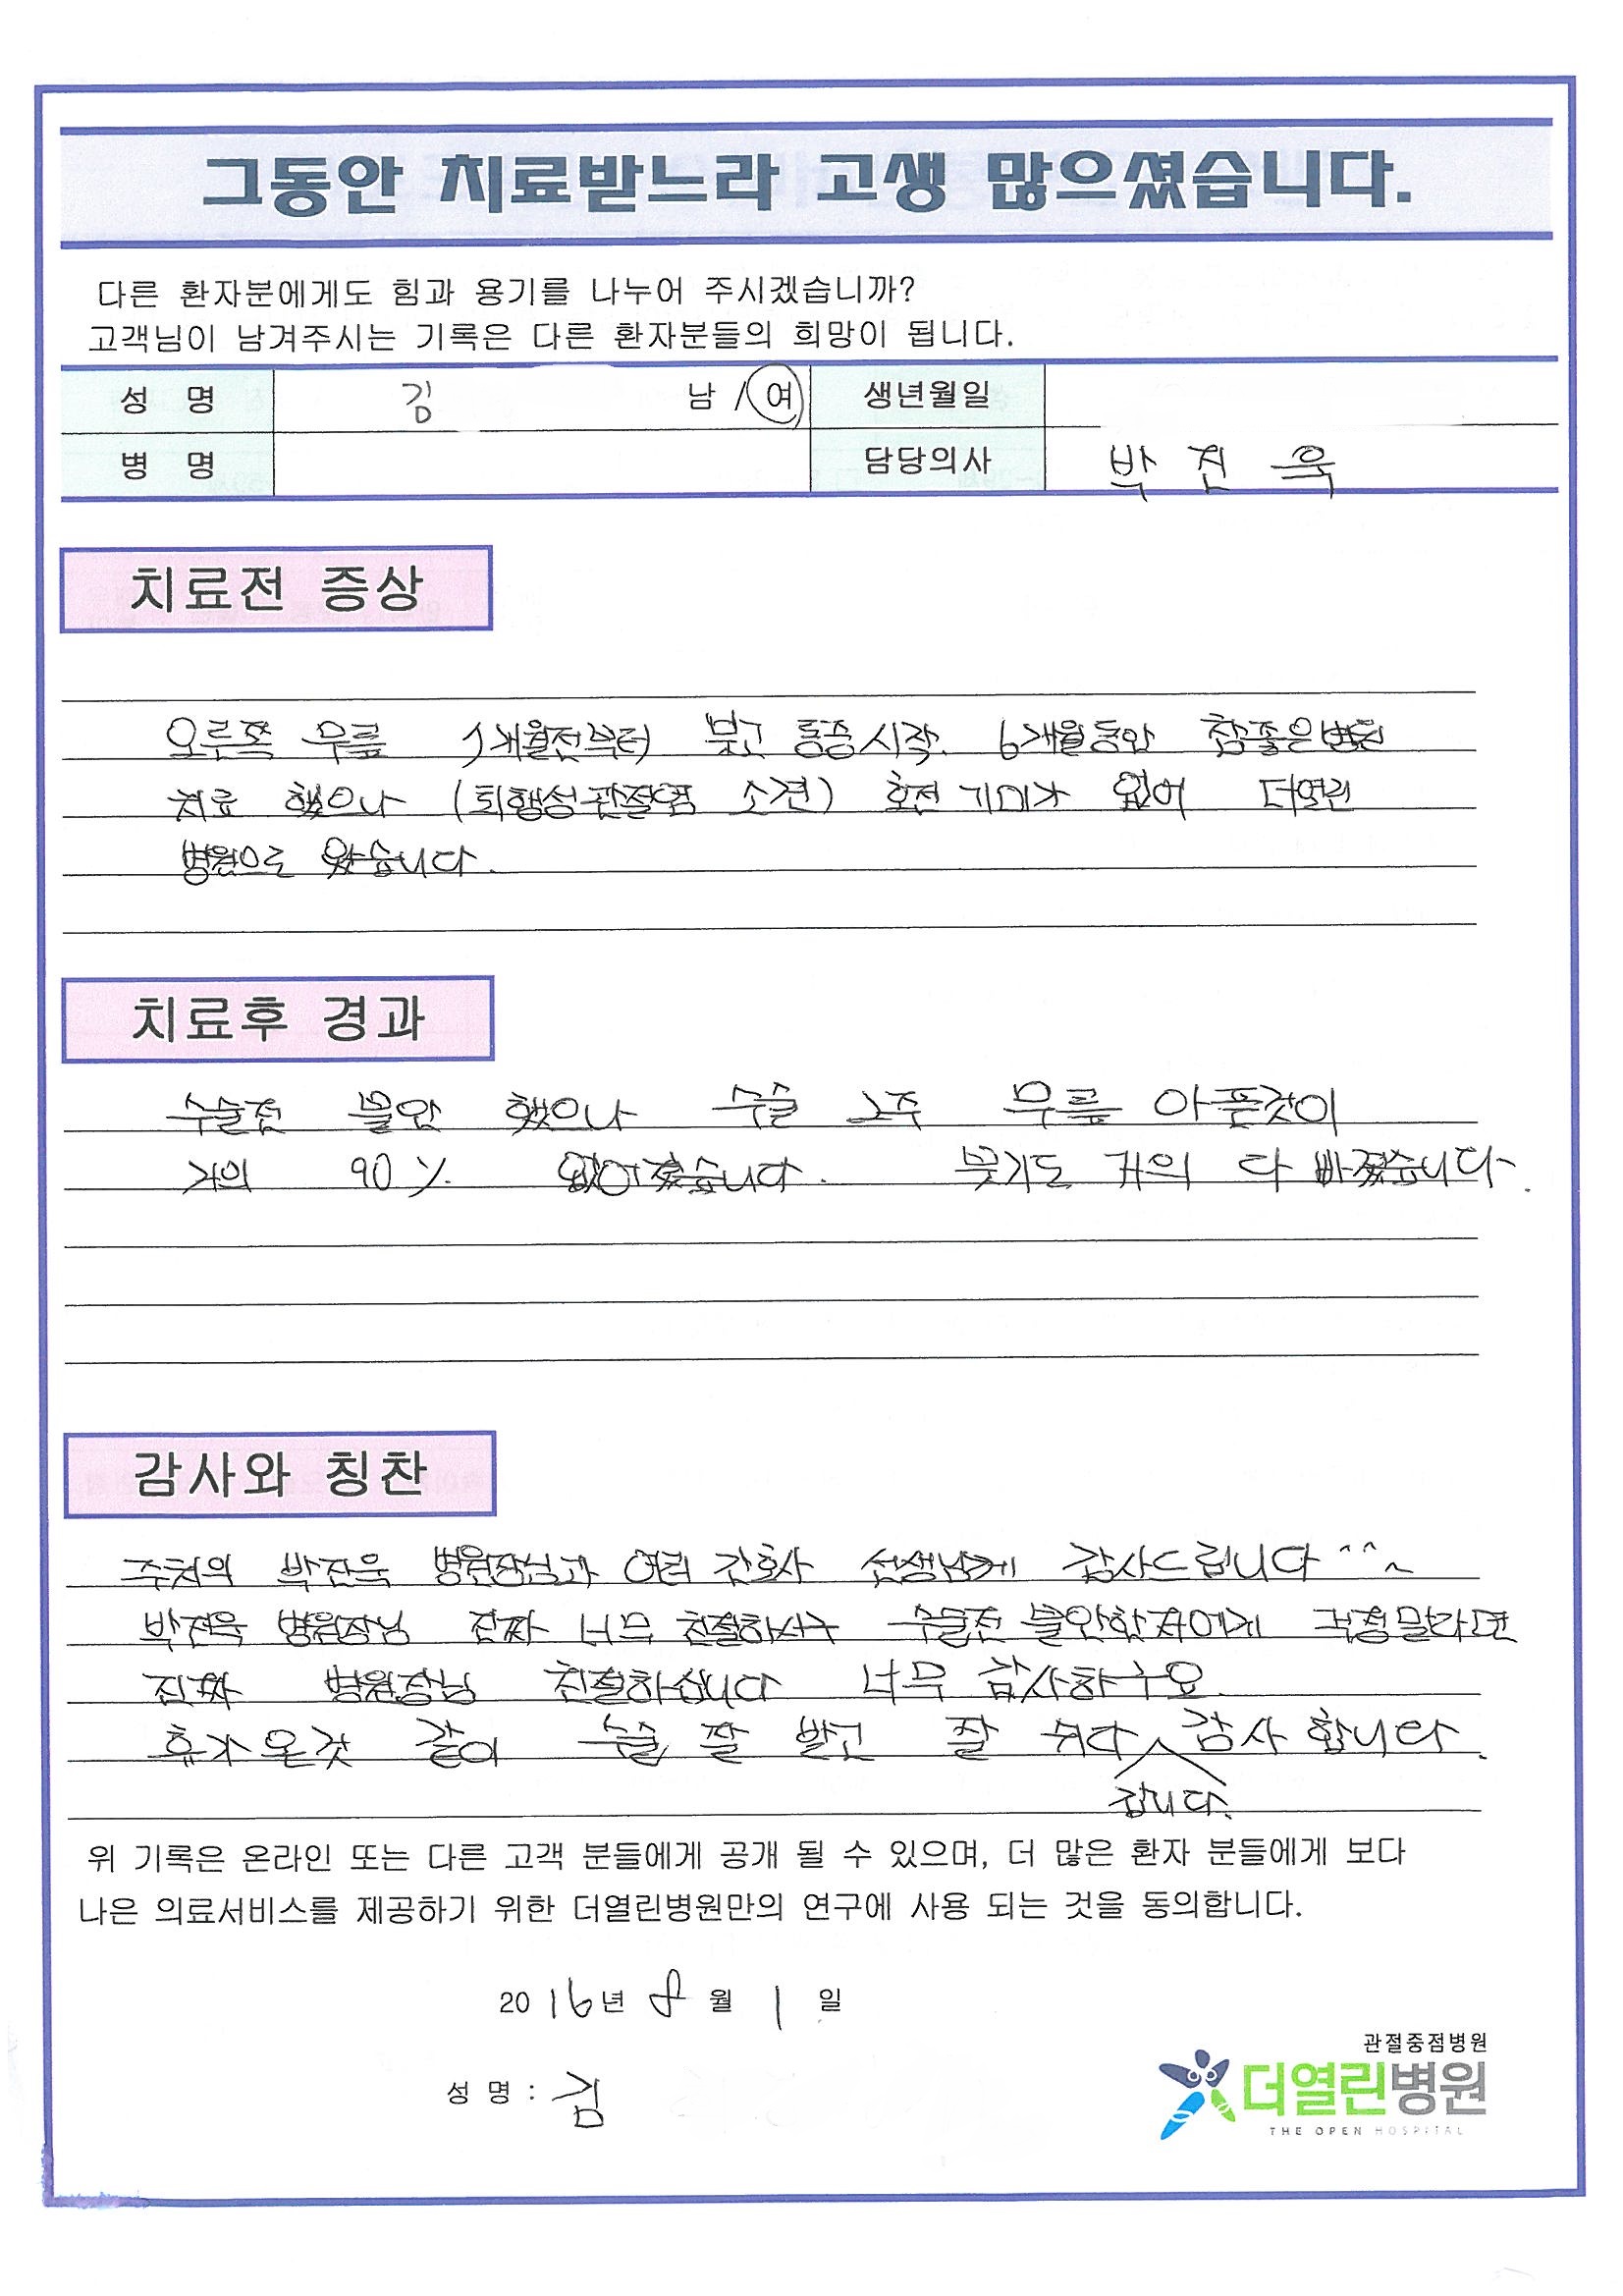 그동안 치료받느라 고생 많으셨습니다.
다른 환자분에게도 힘과 용기를 나누어 주시겠습니까?
고객님이 남겨주시는 기록은 다른 환자분들의 희망이 됩니다.
성 명 김 남 / 여 생년월일
병 명 담당의사 박진욱
치료전 증상
오른쪽 무릎 개월전부터 붓고 통증시작. 6개월동안 참좋은병원
치료 했으나 (퇴행성관절염 소견) 호전 기미가 없어 더열린
병원으로 왔습니다.
치료후 경과
수술전 불안 했으나 수술 2주 무릎 아픈것이
거의 90% 없어졌습니다. 붓기도 거의 다 빠졌습니다.
감사와 칭찬
주치의 박진욱 병원장님과 여러 간호사 선생님께 감사드립니다 ^^~
박진욱 병원장님 진짜 너무 친절하시구 수술전 불안한저에게 걱정말라며
진짜 병원장님 친절하십니다 너무 감사하구요
휴가온것 같이 수술 잘 받고 잘 쉬다 감사합니다.
갑니다.
위 기록은 온라인 또는 다른 고객 분들에게 공개 될 수 있으며, 더 많은 환자 분들에게 보다
나은 의료서비스를 제공하기 위한 더열린병원만의 연구에 사용 되는 것을 동의합니다.
2016년 8월 1일
성 명 : 김
관절중점병원
더열린병원
THE OPEN HOSPITAL